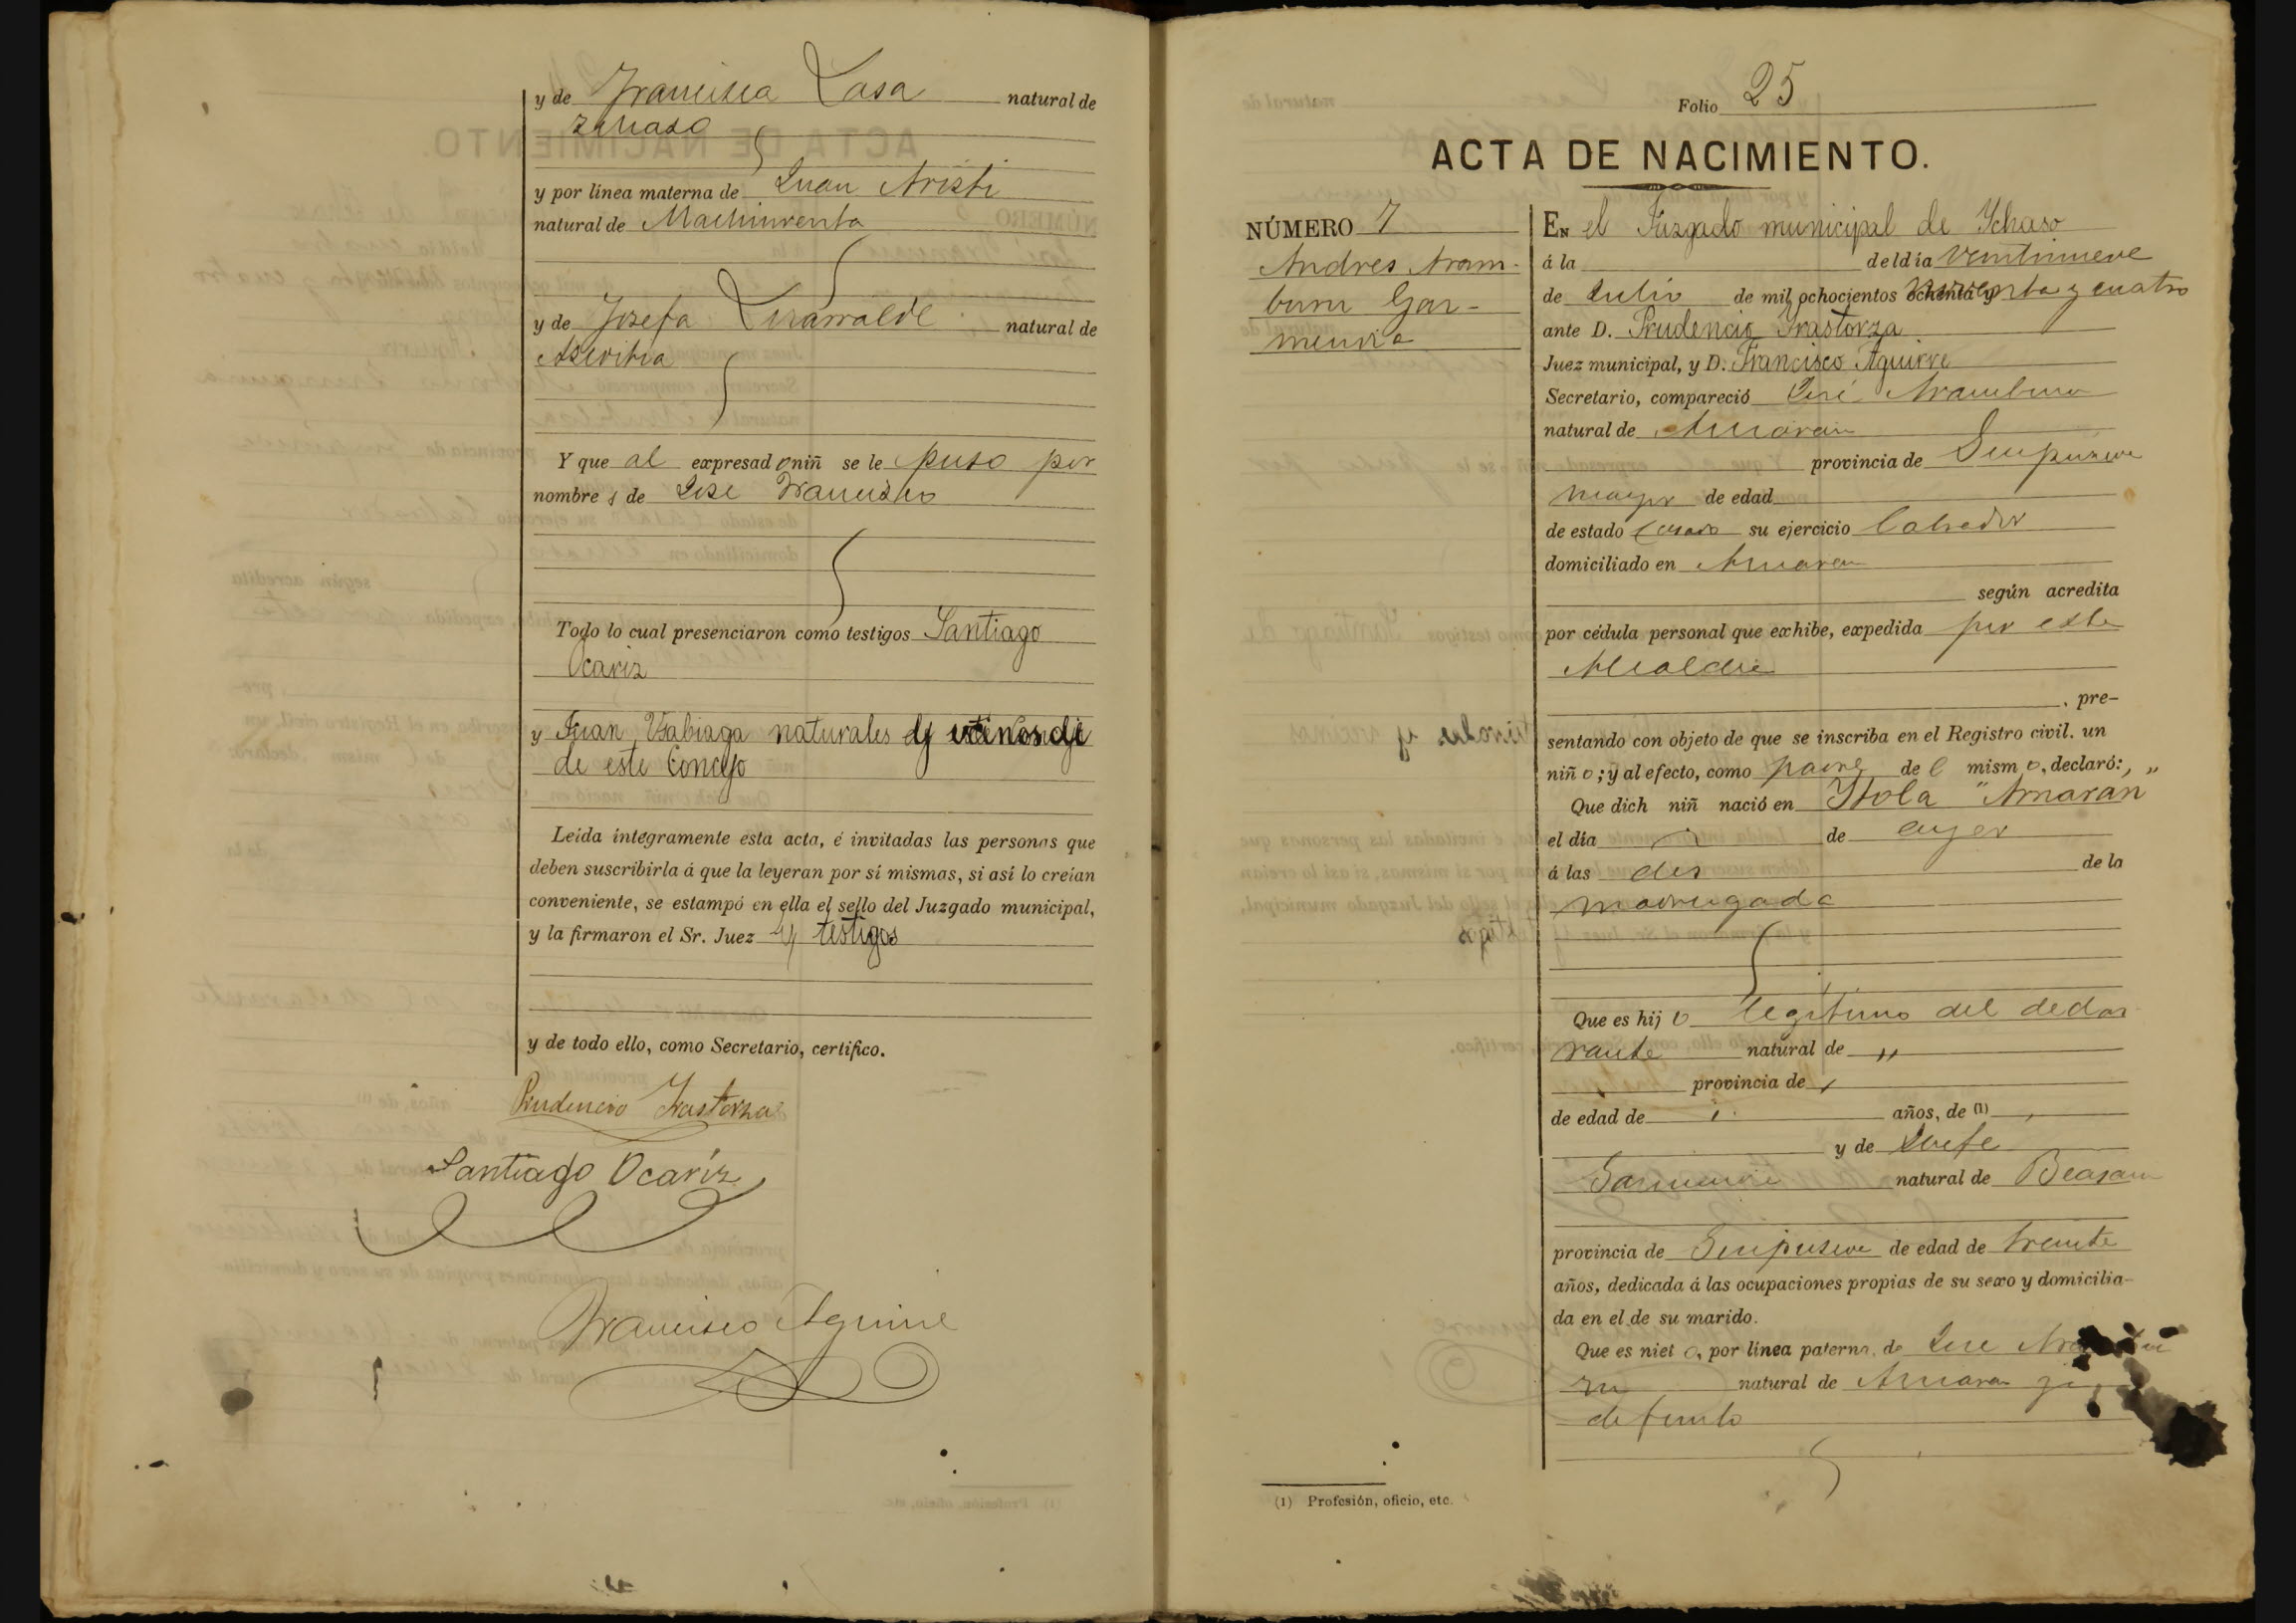 y de Francisca Lasa natural de
y por línea materna de Juan Aristi
natural de Machinventa
y de Josefa Lizarralde natural de
Y que al expresado niñ se le puso por
nombre s de José Francisco
Todo lo cual presenciaron como testigos Santiago
Ocariz
y Juan Usabiaga naturales y vecinos
de este Concejo
Leída íntegramente esta acta, é invitadas las personas que
deben suscribirla á que la leyeran por sí mismas, si así lo creían
conveniente, se estampó en ella el sello del Juzgado municipal,
y la firmaron el Sr. Juez y testigos
y de todo ello, como Secretario, certifico.
Prudencio Yrastorza
Santiago Ocariz
Francisco Aguirre
Folio 25
ACTA DE NACIMIENTO.
NÚMERO 7
Andres Aram-
buru Gar-
mendia
EN el Juzgado municipal de Ychaso
á la del día ventinueve
de Julio de mil ochocientos ochenta y noventa y cuatro
ante D. Prudencio Yrastorza
Juez municipal, y D. Francisco Aguirre
Secretario, compareció José Aramburu
natural de Arriaran
provincia de Guipuzcoa
mayor de edad
de estado casado su ejercicio labrador
domiciliado en Arriaran
según acredita
por cédula personal que exhibe, expedida por esta
Alcaldia
, pre-
sentando con objeto de que se inscriba en el Registro civil, un
niñ o; y al efecto, como padre de l mism o, declaró:
Que dich niñ nació en Ytola "Amaran"
el día de ayer
á las dos de la
madrugada
Que es hij o legitimo del decla
rante natural de "
provincia de
de edad de años, de (1)
y de Josefa
Garmendia natural de Beasain
provincia de Guipuzcoa de edad de treinta
años, dedicada á las ocupaciones propias de su sexo y domicilia-
da en el de su marido.
Que es niet o, por línea paterna de José
ru natural de Arriaran
defunto
(1) Profesión, oficio, etc.